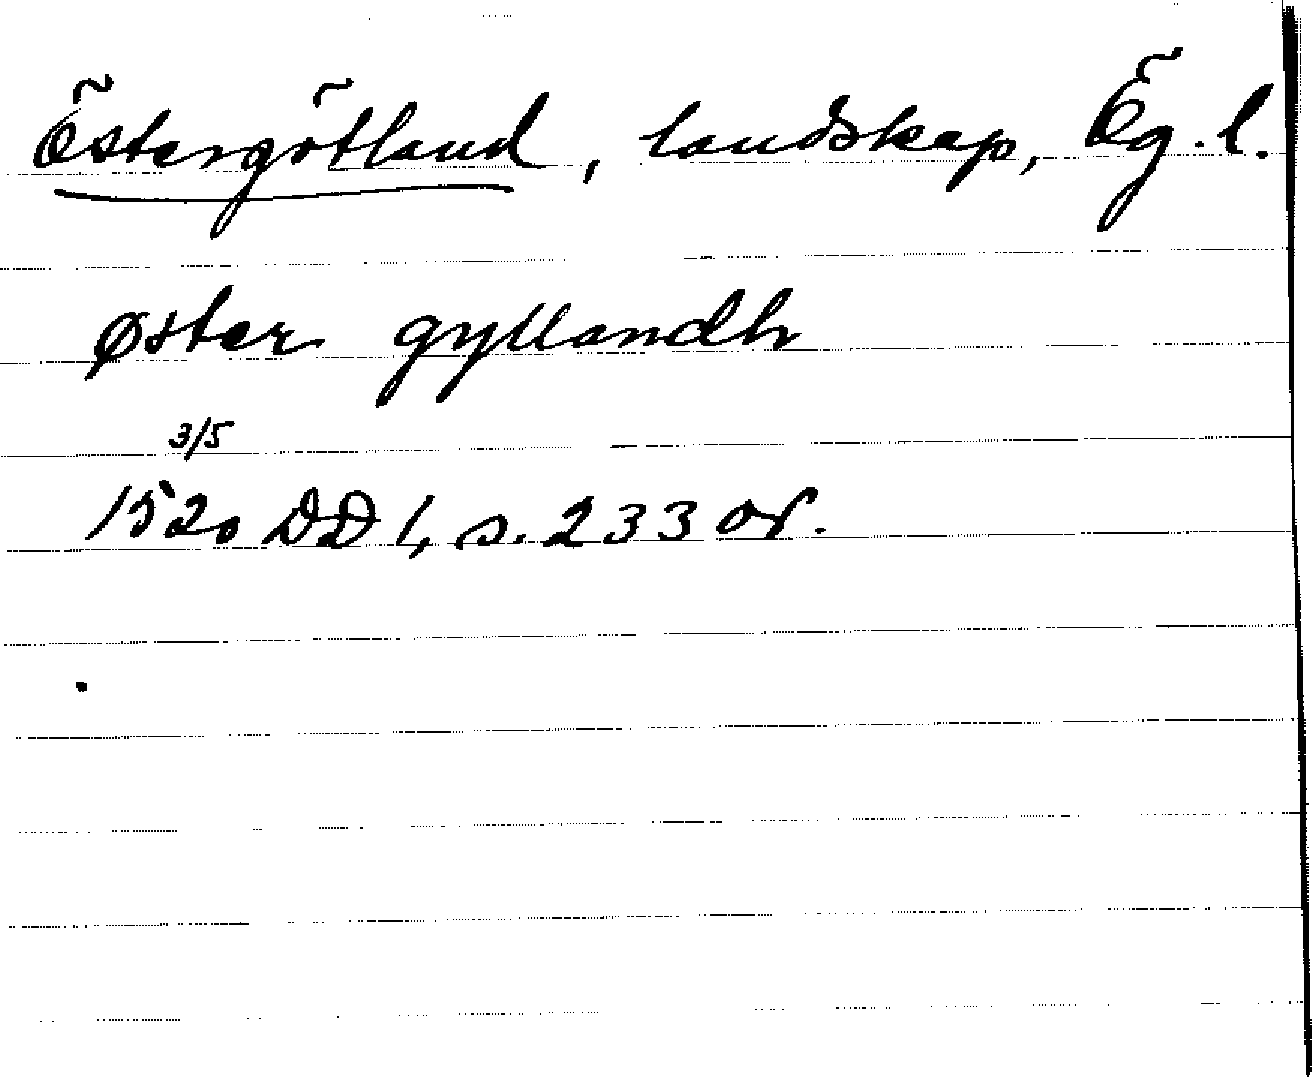 Östergötland, landskap, Ög. l.
øster gyllandh
3/5
1520 DD 1, s. 233 or.